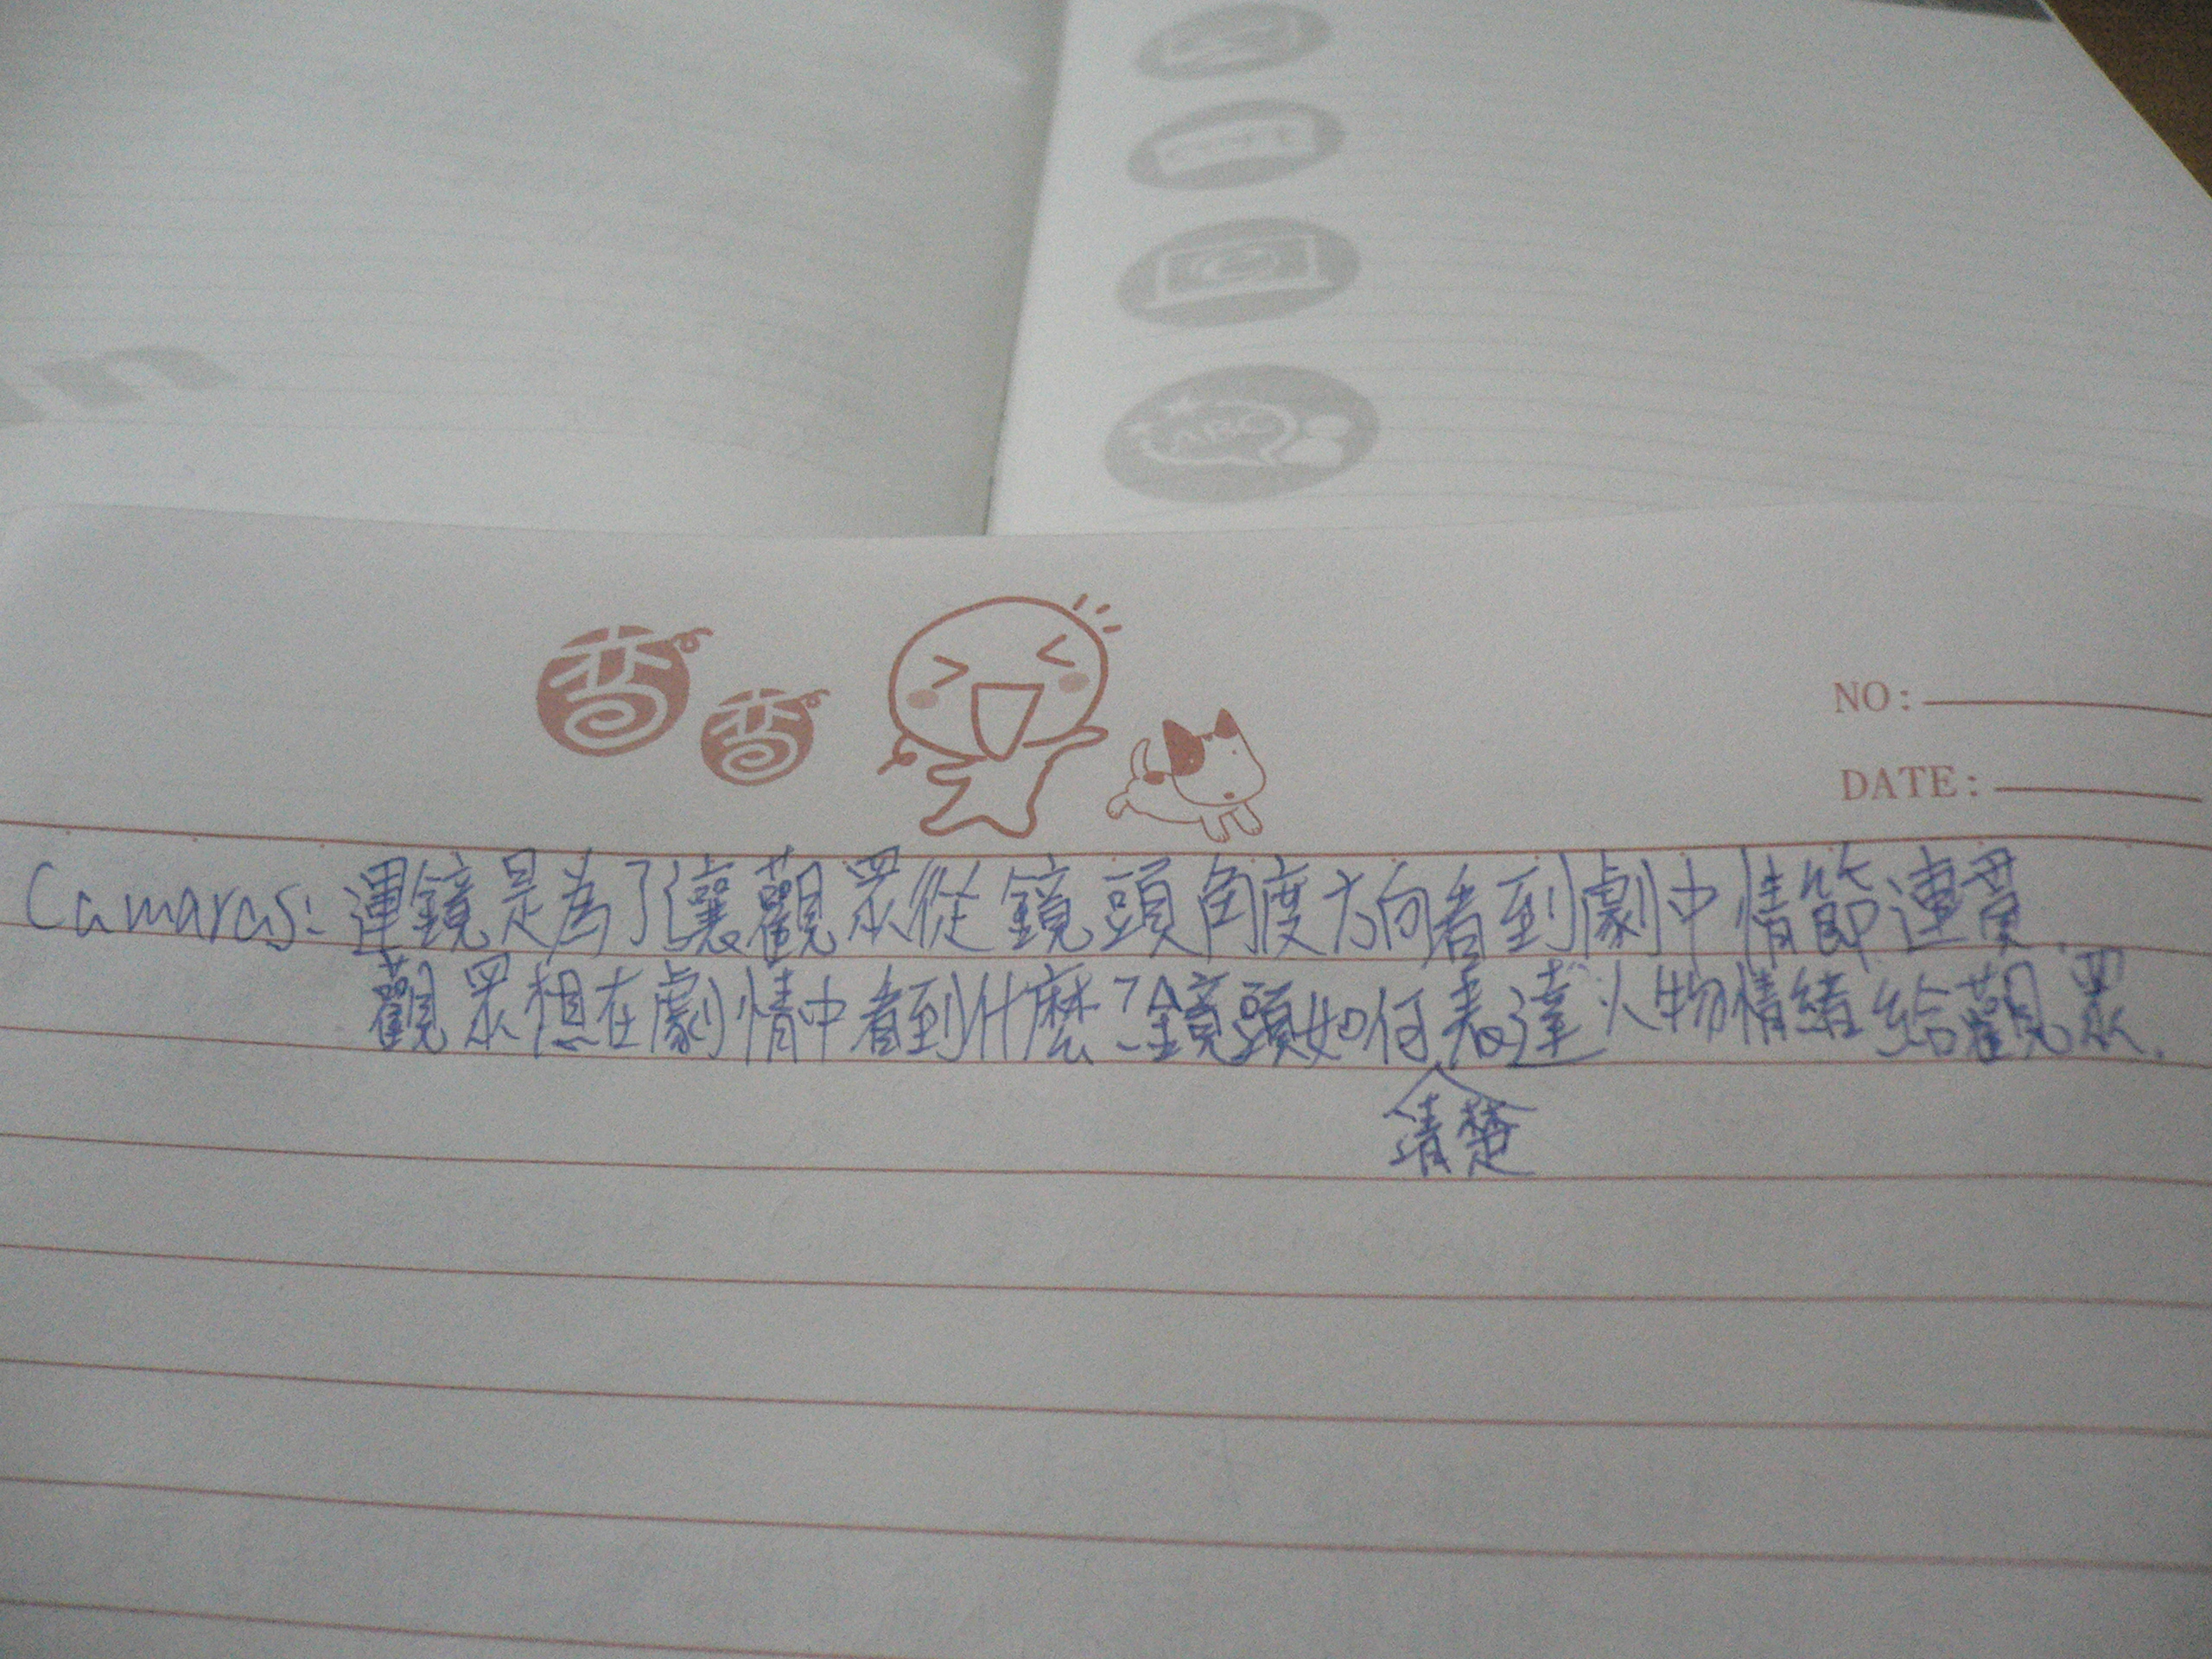 ABC
香香
NO:
DATE:
Camaras: 運鏡是為了讓觀眾從鏡頭角度方向看到劇中情節連貫
觀眾想在劇情中看到什麼?鏡頭如何表達人物情緒給觀眾.
清楚